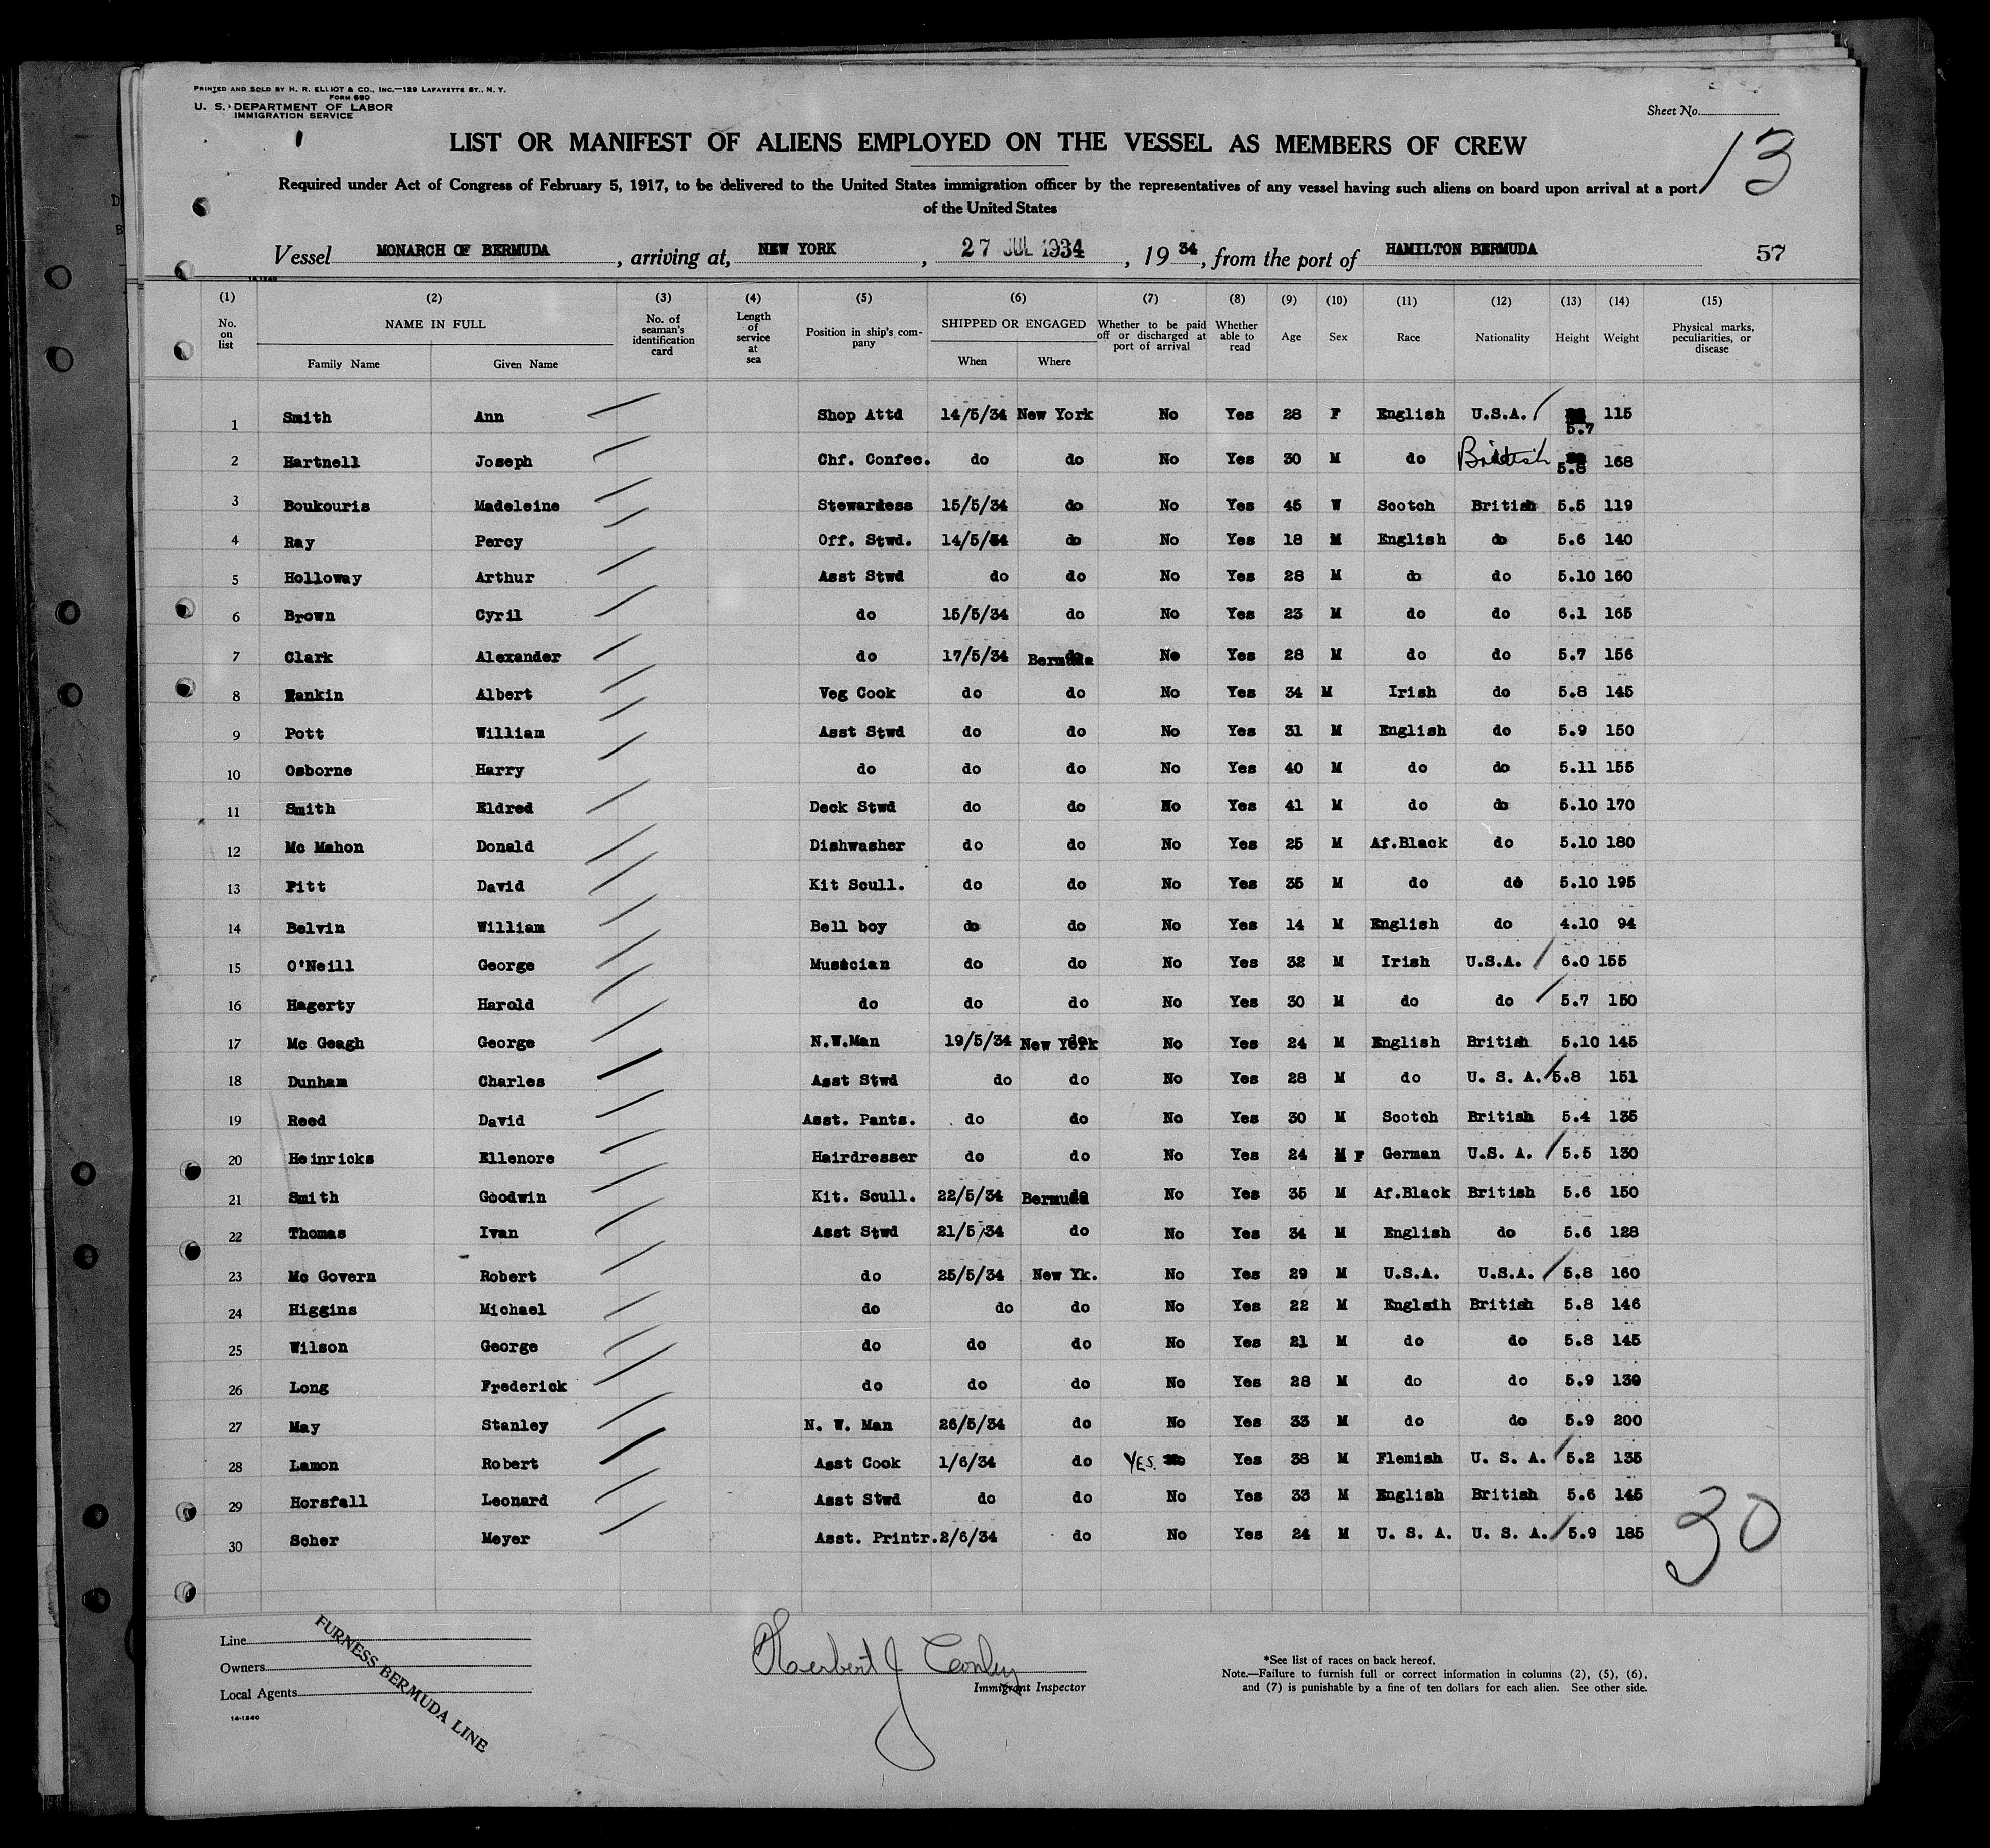 PRINTED AND SOLD BY H. R. ELLIOT & CO., INC.—129 LAFAYETTE ST., N. Y.
FORM 680
U. S. DEPARTMENT OF LABOR
IMMIGRATION SERVICE
Sheet No.
13
LIST OR MANIFEST OF ALIENS EMPLOYED ON THE VESSEL AS MEMBERS OF CREW
Required under Act of Congress of February 5, 1917, to be delivered to the United States immigration officer by the representatives of any vessel having such aliens on board upon arrival at a port
of the United States
Vessel MONARCH OF BERMUDA, arriving at, NEW YORK, 27 JUL 1934, 1934, from the port of HAMILTON BERMUDA 57
14-1240
(1) (2) (3) (4) (5) (6) (7) (8) (9) (10) (11) (12) (13) (14) (15)
No. on list NAME IN FULL Family Name Given Name No. of seaman's identification card Length of service at sea Position in ship's company SHIPPED OR ENGAGED When Where Whether to be paid off or discharged at port of arrival Whether able to read Age Sex Race Nationality Height Weight Physical marks, peculiarities, or disease
1 Smith Ann Shop Attd 14/5/34 New York No Yes 28 F English U.S.A. 5.7 115
2 Hartnell Joseph Chf. Confec. do do No Yes 30 M do British 5.8 168
3 Boukouris Madeleine Stewardess 15/5/34 do No Yes 45 W Scotch British 5.5 119
4 Ray Percy Off. Stwd. 14/5/34 do No Yes 18 M English do 5.6 140
5 Holloway Arthur Asst Stwd do do No Yes 28 M do do 5.10 160
6 Brown Cyril do 15/5/34 do No Yes 23 M do do 6.1 165
7 Clark Alexander do 17/5/34 Bermuda No Yes 28 M do do 5.7 156
8 Rankin Albert Veg Cook do do No Yes 34 M Irish do 5.8 145
9 Pott William Asst Stwd do do No Yes 31 M English do 5.9 150
10 Osborne Harry do do do No Yes 40 M do do 5.11 155
11 Smith Eldred Deck Stwd do do No Yes 41 M do do 5.10 170
12 Mc Mahon Donald Dishwasher do do No Yes 25 M Af.Black do 5.10 180
13 Pitt David Kit Scull. do do No Yes 35 M do do 5.10 195
14 Belvin William Bell boy do do No Yes 14 M English do 4.10 94
15 O'Neill George Musician do do No Yes 32 M Irish U.S.A. 6.0 155
16 Hagerty Harold do do do No Yes 30 M do do 5.7 150
17 Mc Geagh George N.W.Man 19/5/34 New York No Yes 24 M English British 5.10 145
18 Dunham Charles Asst Stwd do do No Yes 28 M do U. S. A. 5.8 151
19 Reed David Asst. Pants. do do No Yes 30 M Scotch British 5.4 135
20 Heinricks Ellenore Hairdresser do do No Yes 24 M F German U.S. A. 5.5 130
21 Smith Goodwin Kit. Scull. 22/5/34 Bermuda No Yes 35 M Af.Black British 5.6 150
22 Thomas Ivan Asst Stwd 21/5/34 do No Yes 34 M English do 5.6 128
23 Mc Govern Robert do 25/5/34 New Yk. No Yes 29 M U.S.A. U.S.A. 5.8 160
24 Higgins Michael do do do No Yes 22 M Englsih British 5.8 146
25 Wilson George do do do No Yes 21 M do do 5.8 145
26 Long Frederick do do do No Yes 28 M do do 5.9 139
27 May Stanley N. W. Man 26/5/34 do No Yes 33 M do do 5.9 200
28 Lamon Robert Asst Cook 1/6/34 do YES. No Yes 38 M Flemish U. S. A. 5.2 135
29 Horsfall Leonard Asst Stwd do do No Yes 33 M English British 5.6 145
30 Scher Meyer Asst. Printr. 2/6/34 do No Yes 24 M U. S. A. U. S. A. 5.9 185
30
Line
Owners
Local Agents
FURNESS BERMUDA LINE
14-1240
Herbert J Conley
Immigrant Inspector
*See list of races on back hereof.
Note.—Failure to furnish full or correct information in columns (2), (5), (6),
and (7) is punishable by a fine of ten dollars for each alien. See other side.